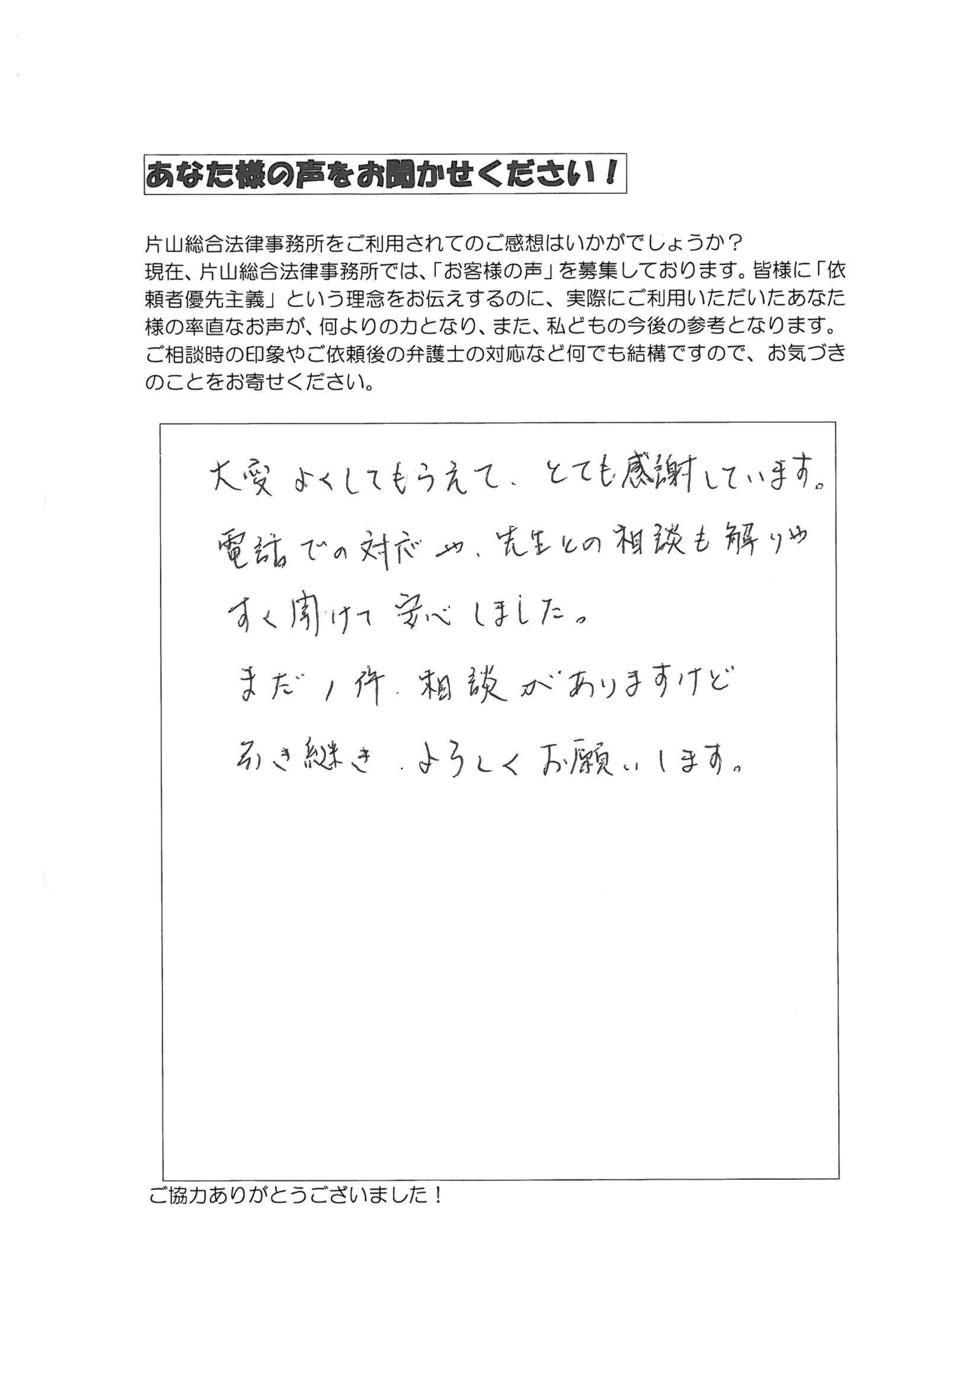 あなた様の声をお聞かせください!
片山総合法律事務所をご利用されてのご感想はいかがでしょうか?
現在、片山総合法律事務所では、「お客様の声」を募集しております。皆様に「依
頼者優先主義」という理念をお伝えするのに、実際にご利用いただいたあなた
様の率直なお声が、何よりの力となり、また、私どもの今後の参考となります。
ご相談時の印象やご依頼後の弁護士の対応など何でも結構ですので、お気づき
のことをお寄せください。
大変よくしてもらえて、とても感謝しています。
電話での対応や、先生との相談も解りや
すく聞けて安心しました。
まだ1件、相談がありますけど
引き継き、よろしくお願いします。
ご協力ありがとうございました!